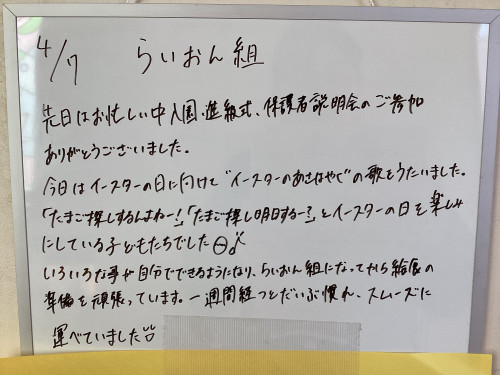 4/7 らいおん組
先日はお忙しい中入園、進級式、保護者説明会のご参加
ありがとうございました。
今日はイースターの日に向けて"イースターのあさはやく"の歌をうたいました。
「たまご探しするんよねー!」「たまご探し明日するー?」とイースターの日を楽しみ
にしている子どもたちでした
いろいろな事が自分でできるようになり、らいおん組になってから給食の
準備を頑張っています。一週間経つとだいぶ慣れ、スムーズに
運べていました